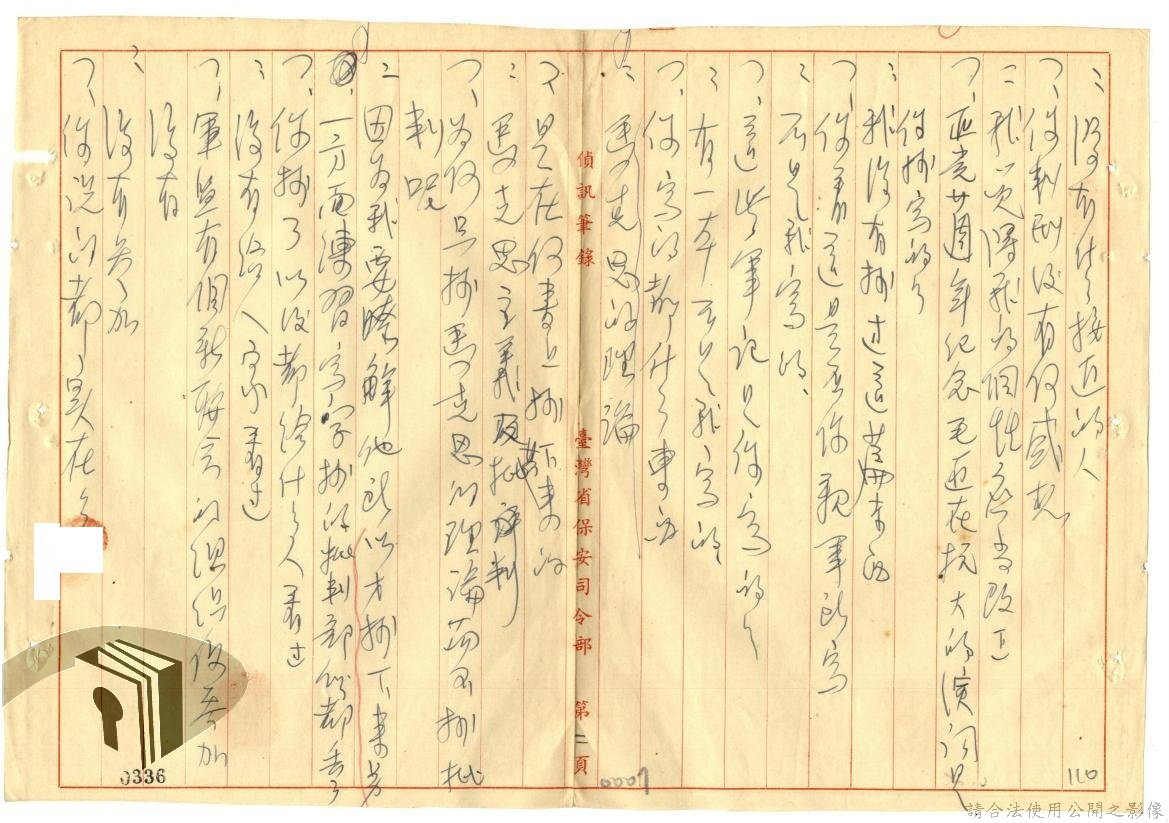 : 沒有什么接近的人
?、你判刑後有何感想
: 我覺得我的個性應當改正
?、匪党廿週年紀念毛匪在抗大的演詞是
你抄寫的么
: 我沒有抄过這篇東西
?、你看這是否你親筆所寫
: 不是我寫的、
?、這些筆記是你寫的么
: 有一本不是我寫的
?、你寫的都什么東西
: 馬克思的理論
偵訊筆錄 臺灣省保安司令部 第二頁
?、是在何書上抄下來的
: 馬克思主義批判
?、為何只抄馬克思的理論而不抄批
判呢
: 因為我要瞭解他所以才抄下來另
一方面練習寫字抄的批判部份都丟了
?、你抄了以後都給什么人看过
: 沒有給人家看过
?、軍監有個新聯会的組織你参加
沒有
: 沒有参加
?、你說的都實在么
110
0007
0336
請合法使用公開之影像